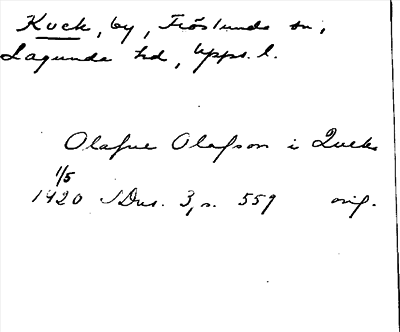 Kuck, by, Fröslunda sn,
Lagunda hd, Upps. l.
Olafue Olafson i Quek
1/5
1420 SDns. 3, s. 559 orig.